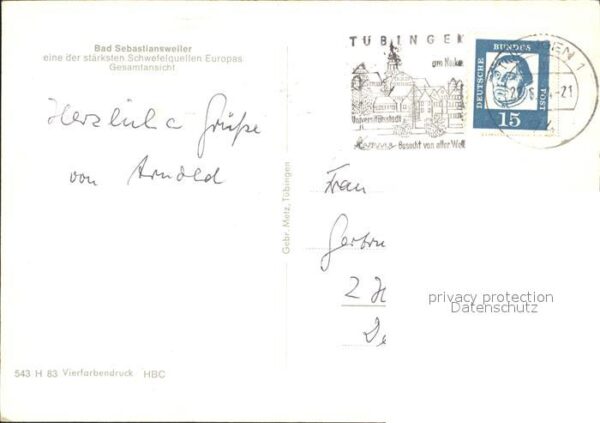 Bad Sebastiansweiler
eine der stärksten Schwefelquellen Europas
Gesamtansicht
Herzliche Grüße
von Arnold
Gebr. Metz, Tübingen
543 H 83 Vierfarbendruck HBC
TÜBINGEN
am Neckar
Universitätsstadt
Besucht von aller Welt
GEN 1
-21
DEUTSCHE BUNDES POST
15
Frau
2 H
De
privacy protection
Datenschutz